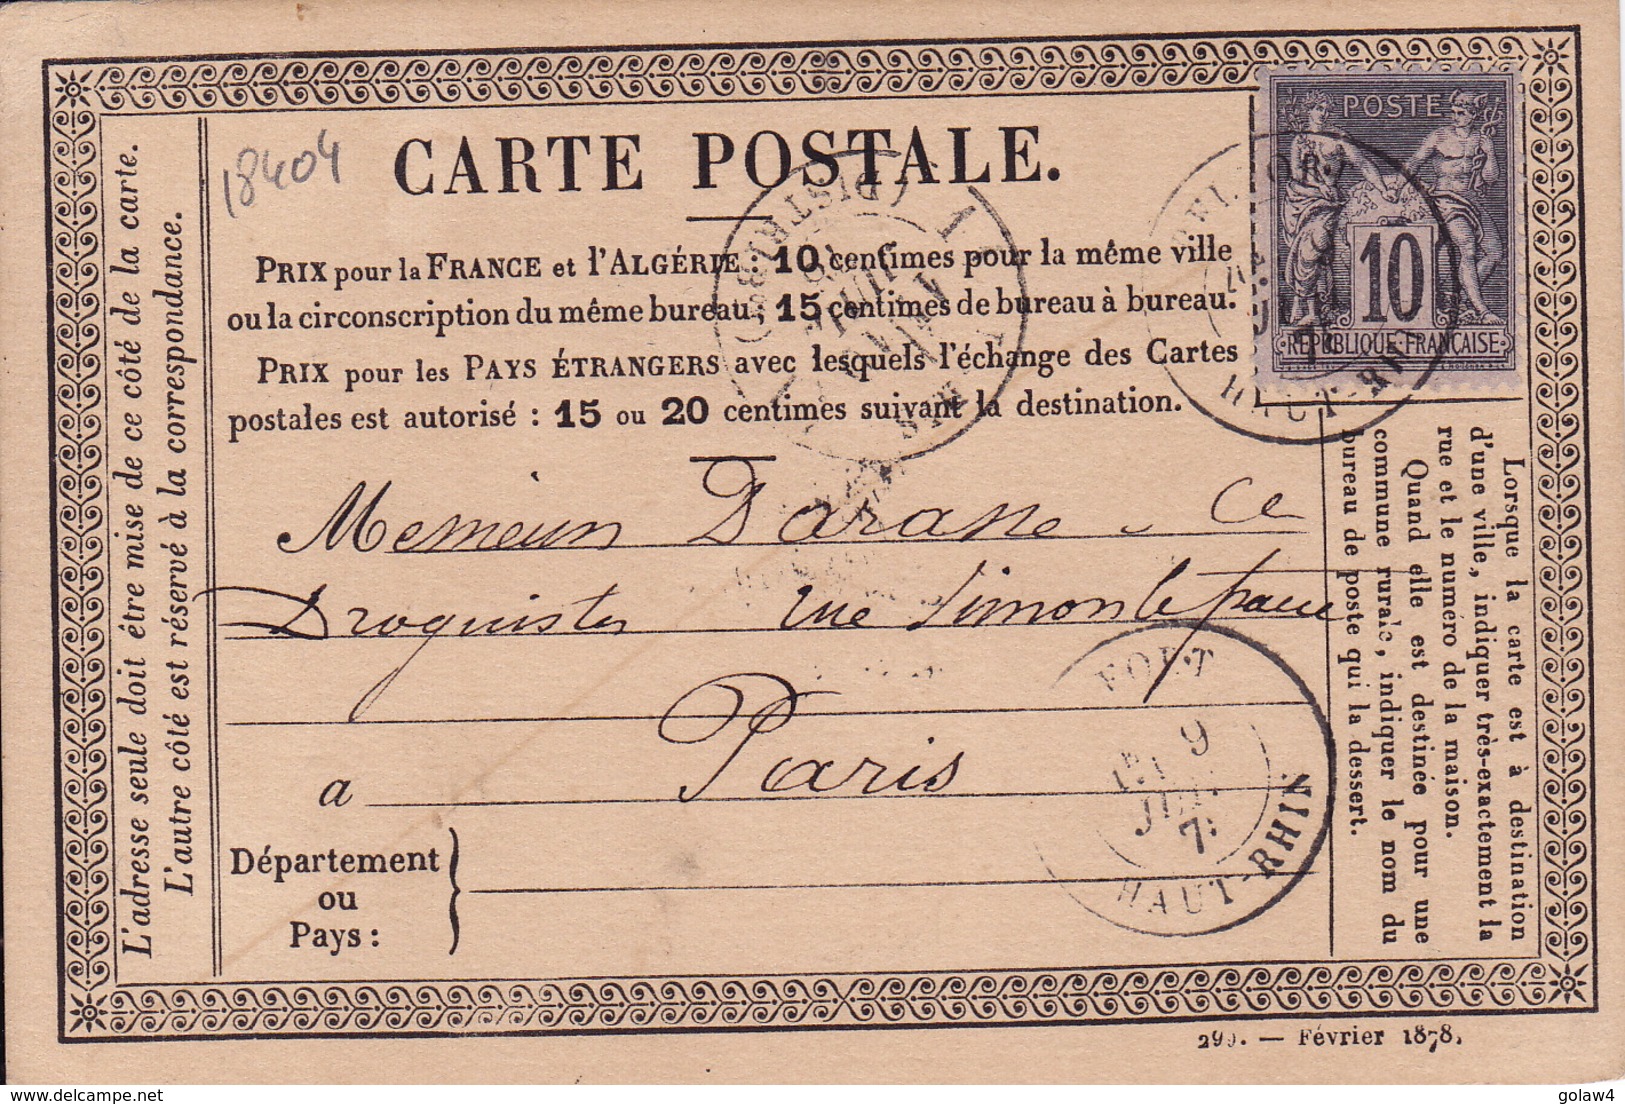 18404
CARTE POSTALE.
POSTE
10
RÉPUBLIQUE FRANÇAISE
PRIX pour la FRANCE et l'ALGÉRIE : 10 centimes pour la même ville
ou la circonscription du même bureau ; 15 centimes de bureau à bureau.
PRIX pour les PAYS ÉTRANGERS avec lesquels l'échange des Cartes
postales est autorisé : 15 ou 20 centimes suivant la destination.
HAUT-RHIN
Darasse & Cie
Droguistes rue Simon le franc
a Paris
Département
ou
Pays :
L'adresse seule doit être mise de ce côté de la carte.
L'autre côté est réservé à la correspondance.
Lorsque la carte est à destination
d'une ville, indiquer très-exactement la
rue et le numéro de la maison.
Quand elle est destinée pour une
commune rurale, indiquer le nom du
bureau de poste qui la dessert.
FORT
9
HAUT-RHIN
299. — Février 1878.
delcampe.net
golaw4